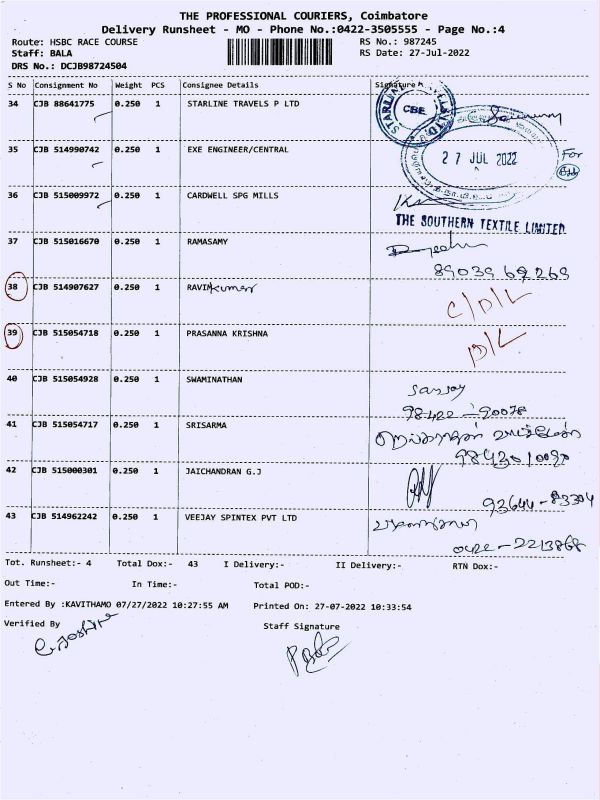 THE PROFESSIONAL COURIERS, Coimbatore
Delivery Runsheet - MO - Phone No.:0422-3505555 - Page No.:4
Route: HSBC RACE COURSE RS No.: 987245
Staff: BALA RS Date: 27-Jul-2022
DRS No.: DCJB98724504
S No Consignment No Weight PCS Consignee Details Signature
34 CJB 88641775 0.250 1 STARLINE TRAVELS P LTD
CBE
35 CJB 514990742 0.250 1 EXE ENGINEER/CENTRAL
27 JUL 2022 For
36 CJB 515009972 0.250 1 CARDWELL SPG MILLS
THE SOUTHERN TEXTILE LIMITED
37 CJB 515016670 0.250 1 RAMASAMY
89039 69269
38 CJB 514907627 0.250 1 RAVIKumar C/D/L
39 CJB 515054718 0.250 1 PRASANNA KRISHNA D/L
40 CJB 515054928 0.250 1 SWAMINATHAN Sanjay
98422-90078
41 CJB 515054717 0.250 1 SRISARMA
42 CJB 515000301 0.250 1 JAICHANDRAN G.J
93644-83304
43 CJB 514962242 0.250 1 VEEJAY SPINTEX PVT LTD
0422-2213868
Tot. Runsheet:- 4 Total Dox:- 43 I Delivery:- II Delivery:- RTN Dox:-
Out Time:- In Time:- Total POD:-
Entered By :KAVITHAMO 07/27/2022 10:27:55 AM Printed On: 27-07-2022 10:33:54
Verified By Staff Signature